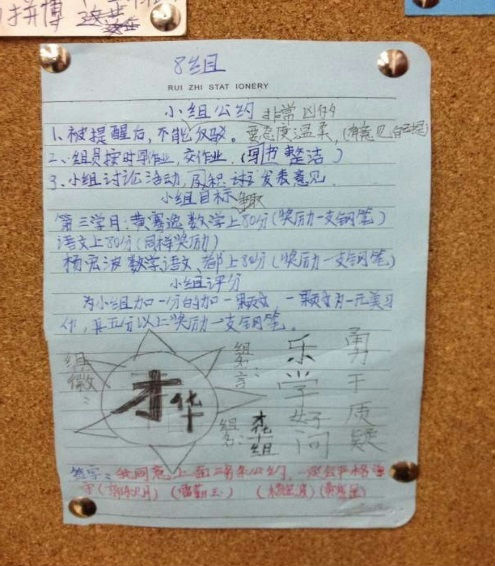 拼博
8组
RUI ZHI STATIONERY
小组公约 非常
1、被提醒后,不能反驳。要态度温柔,(有意见自己提)
2、组员按时写作业,交作业,(书写整洁)
3、小组讨论活动,积极 发表意见
小组目标
第三学月,黄 逸数学上80分(奖励一支钢笔)
语文上80分(同样奖励)
杨宏波数学语文都上80分(奖励一支钢笔)
小组评分
为小组加一分的加一颗 ,一颗 为一元
五分以上奖励一支钢笔。
组徽:
才华
组名言:
乐学好问
勇于质疑
组名:
才华组
签字:我同意上面 条公约,一定严格遵
守